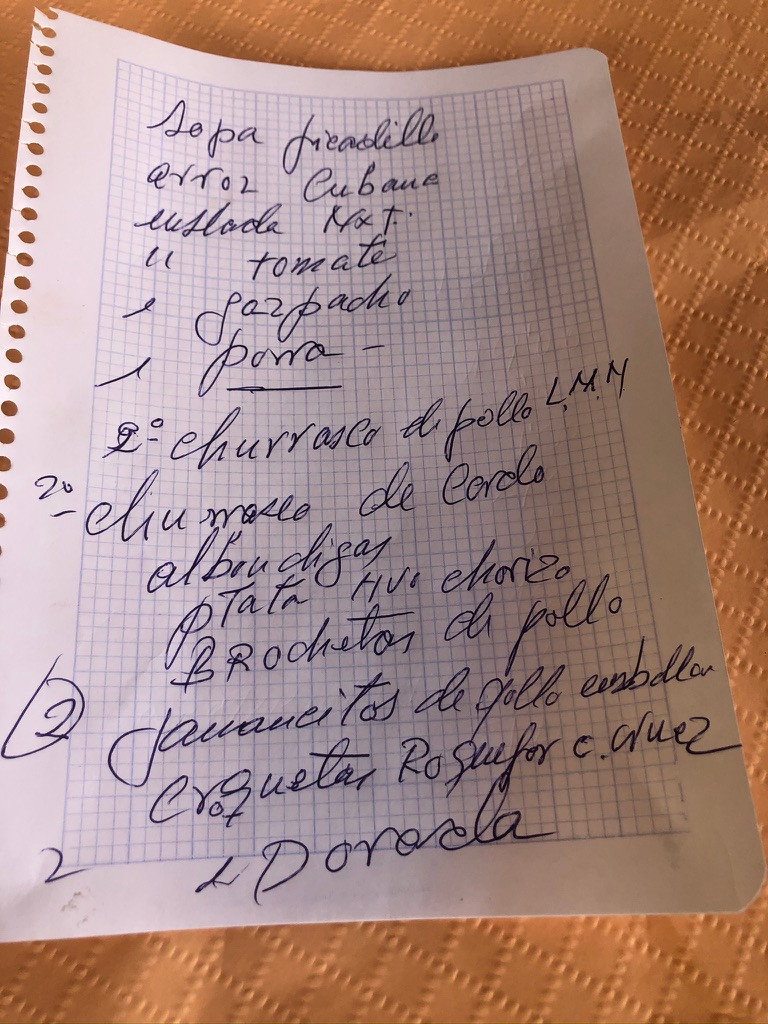 Sopa picadillo
arroz Cubana
enslada Mxt.
" tomate
- gazpacho
1 porra -
2º churrasco de pollo L.M.M
2º churrasco de Cerdo
albóndigas
ptata HVo chorizo
BRochetas de pollo
2 jamoncitos de pollo
croquetas Roquefor c. nuez
2 Dorada